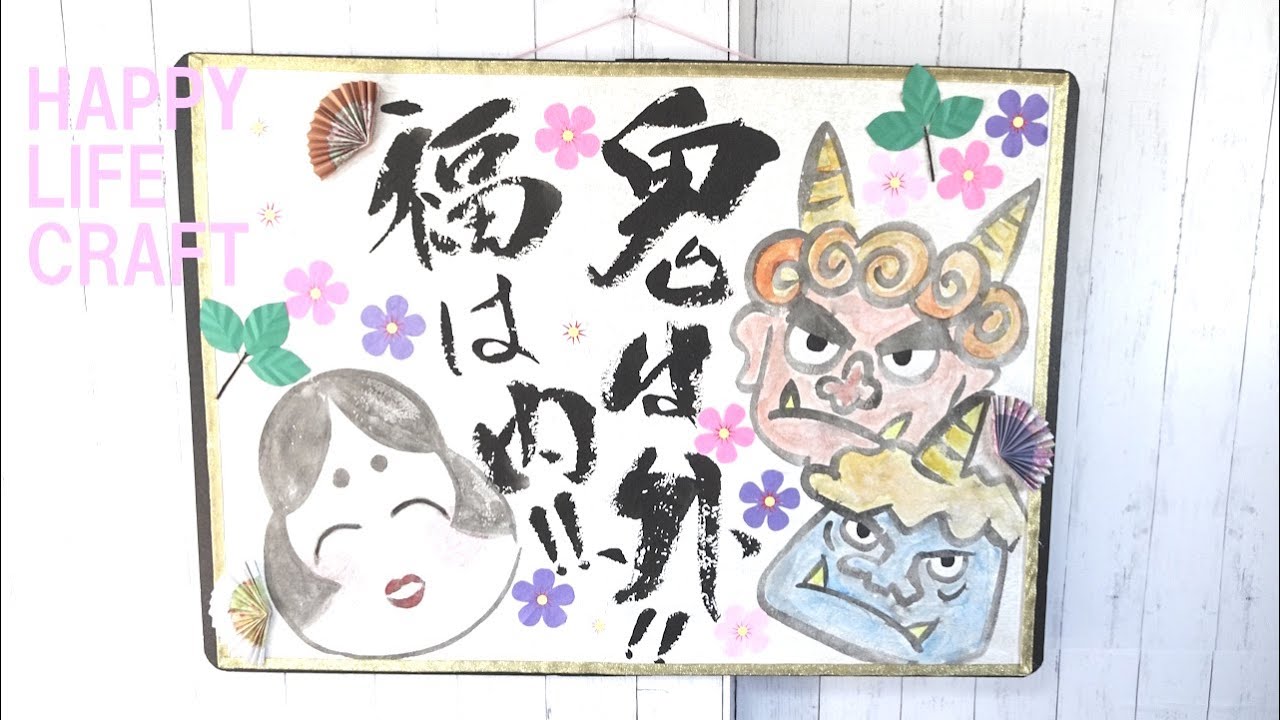 HAPPY
LIFE
CRAFT
鬼は外、!!
福は内!!